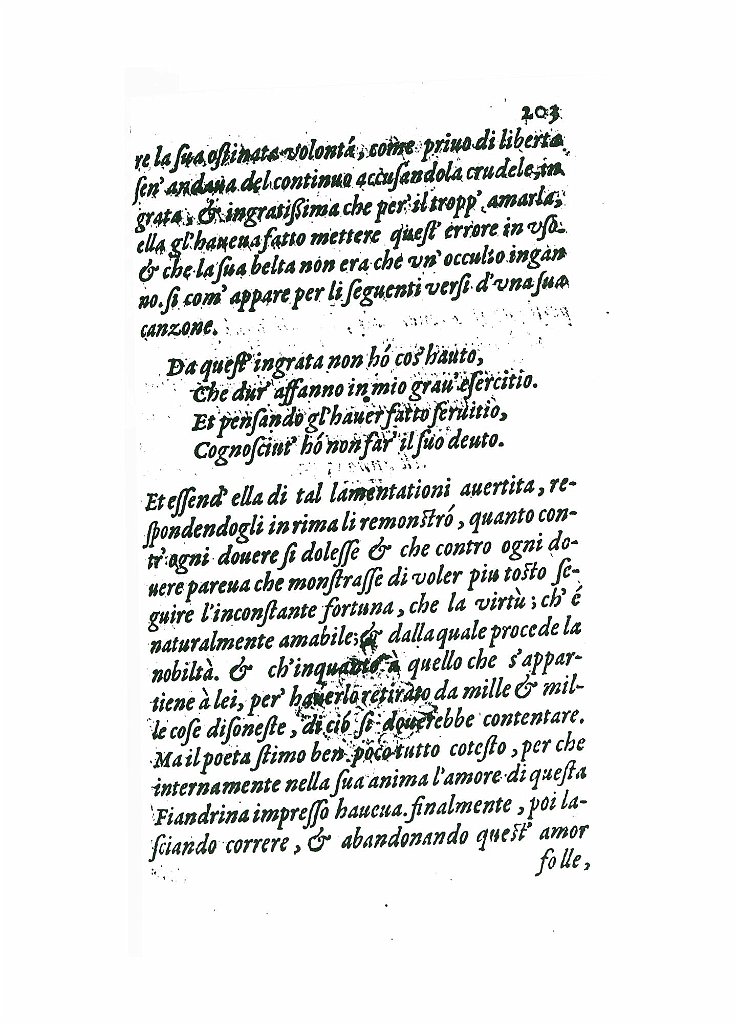 203
re la ſua oſtinata volontá, come priuo di liberta
ſen' andaua del continuo accuſandola crudele, in
grata, & ingratiſſima che per' il tropp' amarla,
ella gl' haueua fatto mettere queſt' errore in vſo.
& che la ſua belta non era che vn' occulto ingan
no. ſi com' appare per li ſeguenti verſi d' vna ſua
canzone.
Da queſt' ingrata non hó coſ' hauto,
Che dur' affanno in mio grau' eſercitio.
Et penſando gl' hauer fatto ſeruitio,
Cognoſciut' hó non far' il ſuo deuto.
Et eſſend' ella di tal lamentationi auertita, re-
ſpondendogli in rima li remonſtró, quanto con-
tr' ogni douere ſi doleſſe & che contro ogni do-
uere pareua che monſtraſſe di voler piu toſto ſe-
guire l'inconſtante fortuna, che la virtù; ch' é
naturalmente amabile; & dalla quale procede la
nobiltà. & ch' inquanto à quello che s' appar-
tiene à lei, per' hauerlo retirato da mille & mil-
le coſe diſoneſte, di ció ſi douerebbe contentare.
Ma il poeta ſtimo ben poco tutto coteſto, per che
internamente nella ſua anima l'amore di queſta
Fiandrina impreſſo haueua. finalmente, poi la-
ſciando correre, & abandonando queſt' amor
folle,